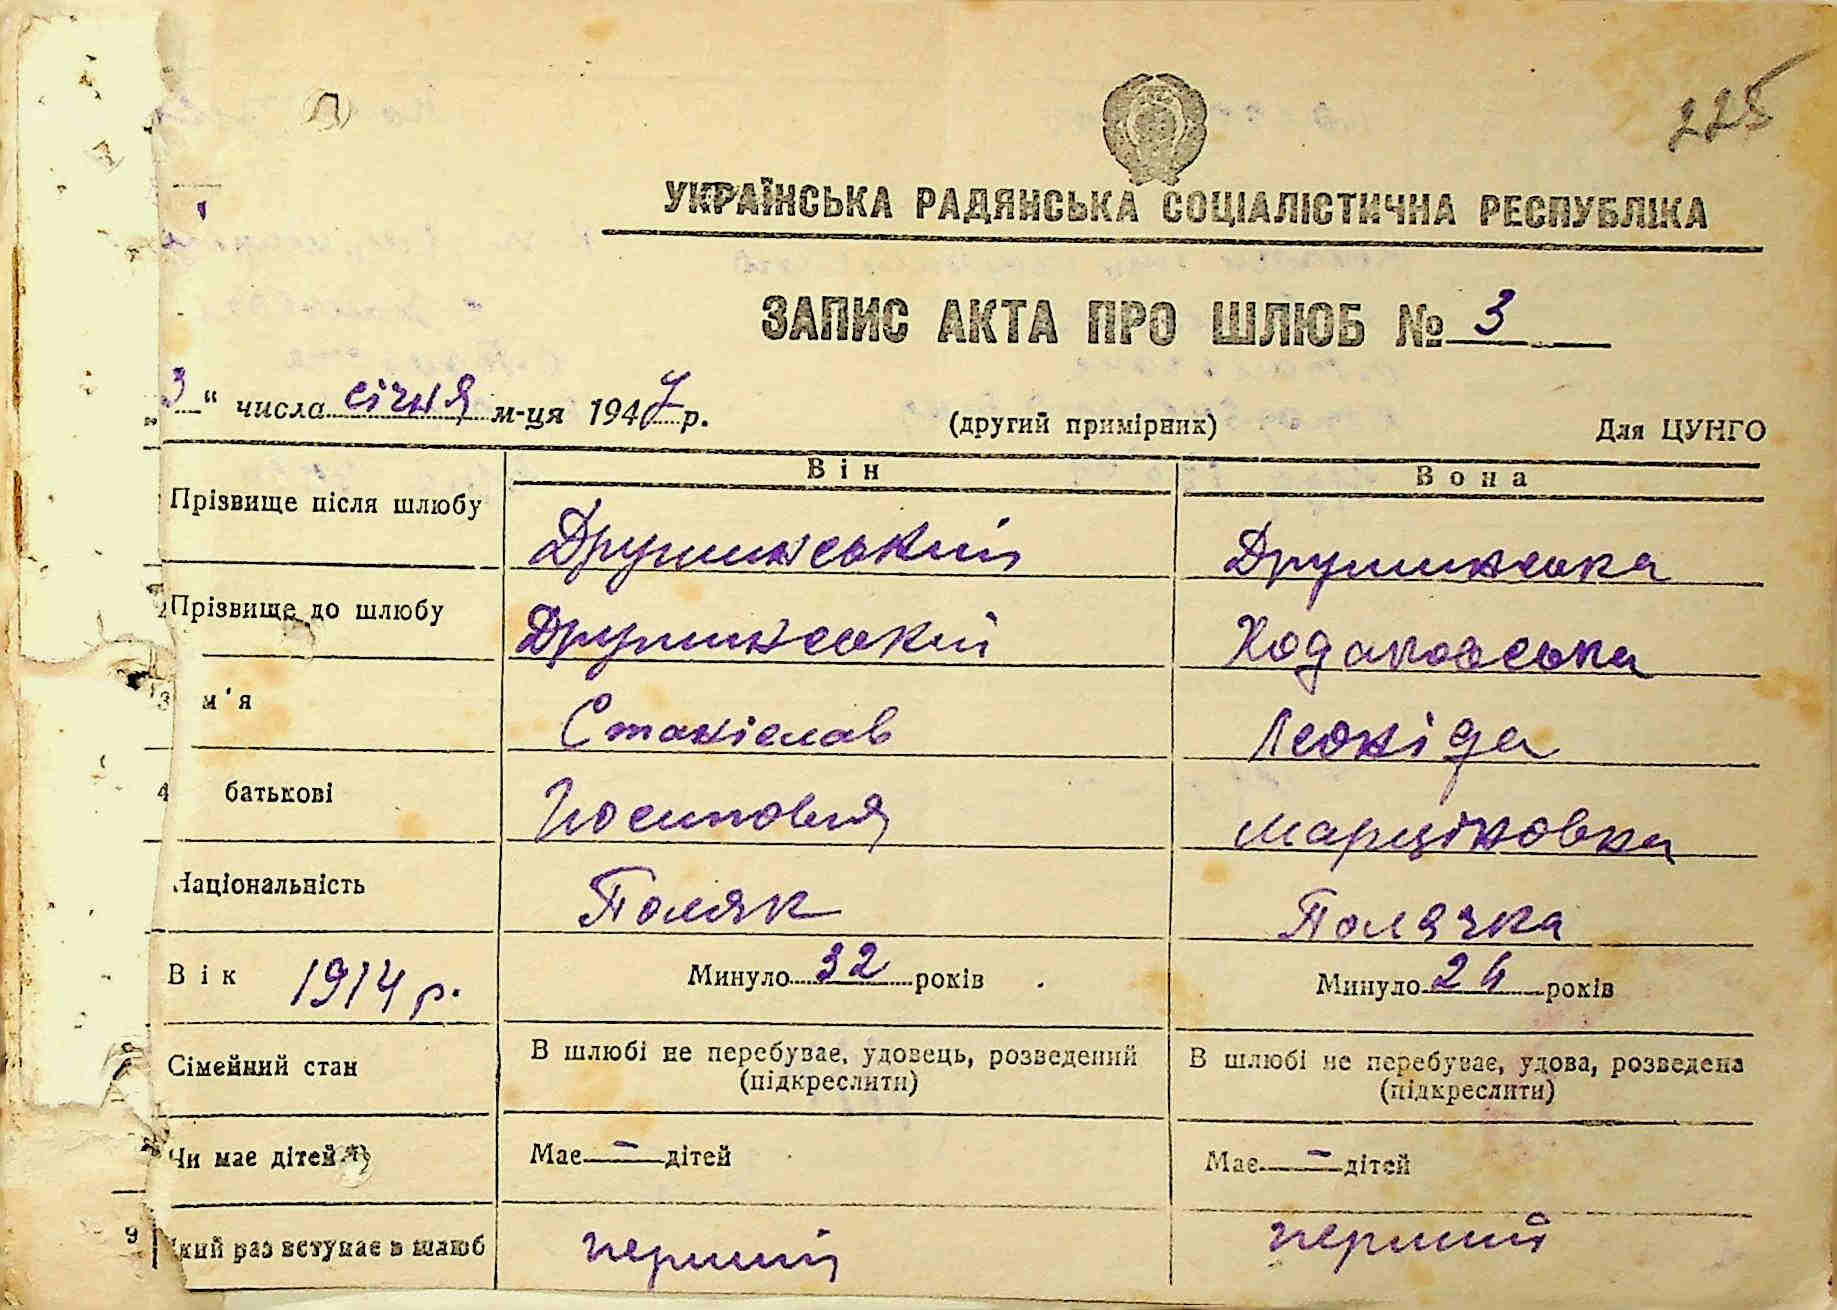 225
УКРАЇНСЬКА РАДЯНСЬКА СОЦІАЛІСТИЧНА РЕСПУБЛІКА
ЗАПИС АКТА ПРО ШЛЮБ № 3
3 " числа січня м-ця 1947 р. (другий примірник) Для ЦУНГО
Він Вона
Прізвище після шлюбу Друминський Друминська
2 Прізвище до шлюбу Друминський Ходаковська
3 м'я Станіслав Леоніда
4 батькові Йосипович Марціновна
Національність Поляк Полячка
Вік 1914 р. Минуло 32 років Минуло 24 років
Сімейний стан В шлюбі не перебуває, удовець, розведений (підкреслити) В шлюбі не перебуває, удова, розведена (підкреслити)
Чи має дітей *) Має – дітей Має – дітей
9 кий раз вступає в шлюб перший перший